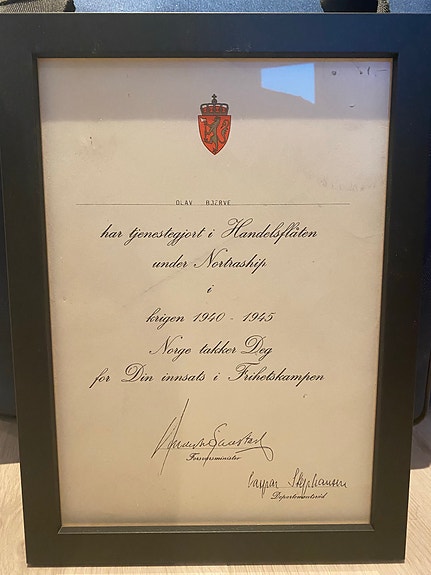 OLAV BJERVE
har tjenestegjort i Handelsflåten
under Nortraship
i
krigen 1940 - 1945
Norge takker Deg
for Din innsats i Frihetskampen
Forsvarsminister
Caspar Stephansen
Departementsråd